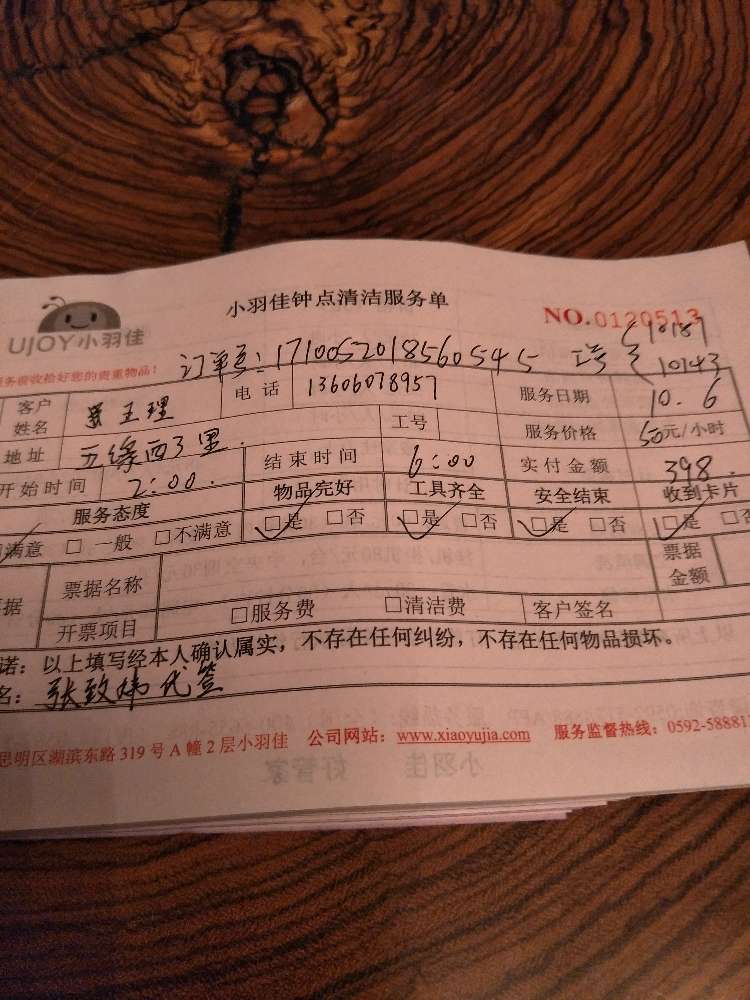 小羽佳钟点清洁服务单
NO.0120513
UJOY小羽佳
订单号:17100520185605545 工号 10187
10143
服务前请收拾好您的贵重物品!
客户姓名 王理 电话 13606078957 服务日期 10.6
地址 五缘西3里. 工号 服务价格 50元/小时
开始时间 2:00. 结束时间 6:00 实付金额 398.
服务态度 物品完好 工具齐全 安全结束 收到卡片
满意 □ 一般 □不满意 □是 □否 □是 □否 □是 □否 □是 □否
据 票据名称 票据金额
开票项目 □服务费 □清洁费 客户签名
诺:以上填写经本人确认属实,不存在任何纠纷,不存在任何物品损坏。
名:张致炜代签
思明区湖滨东路319号A幢2层小羽佳 公司网站:www.xiaoyujia.com 服务监督热线:0592-58881